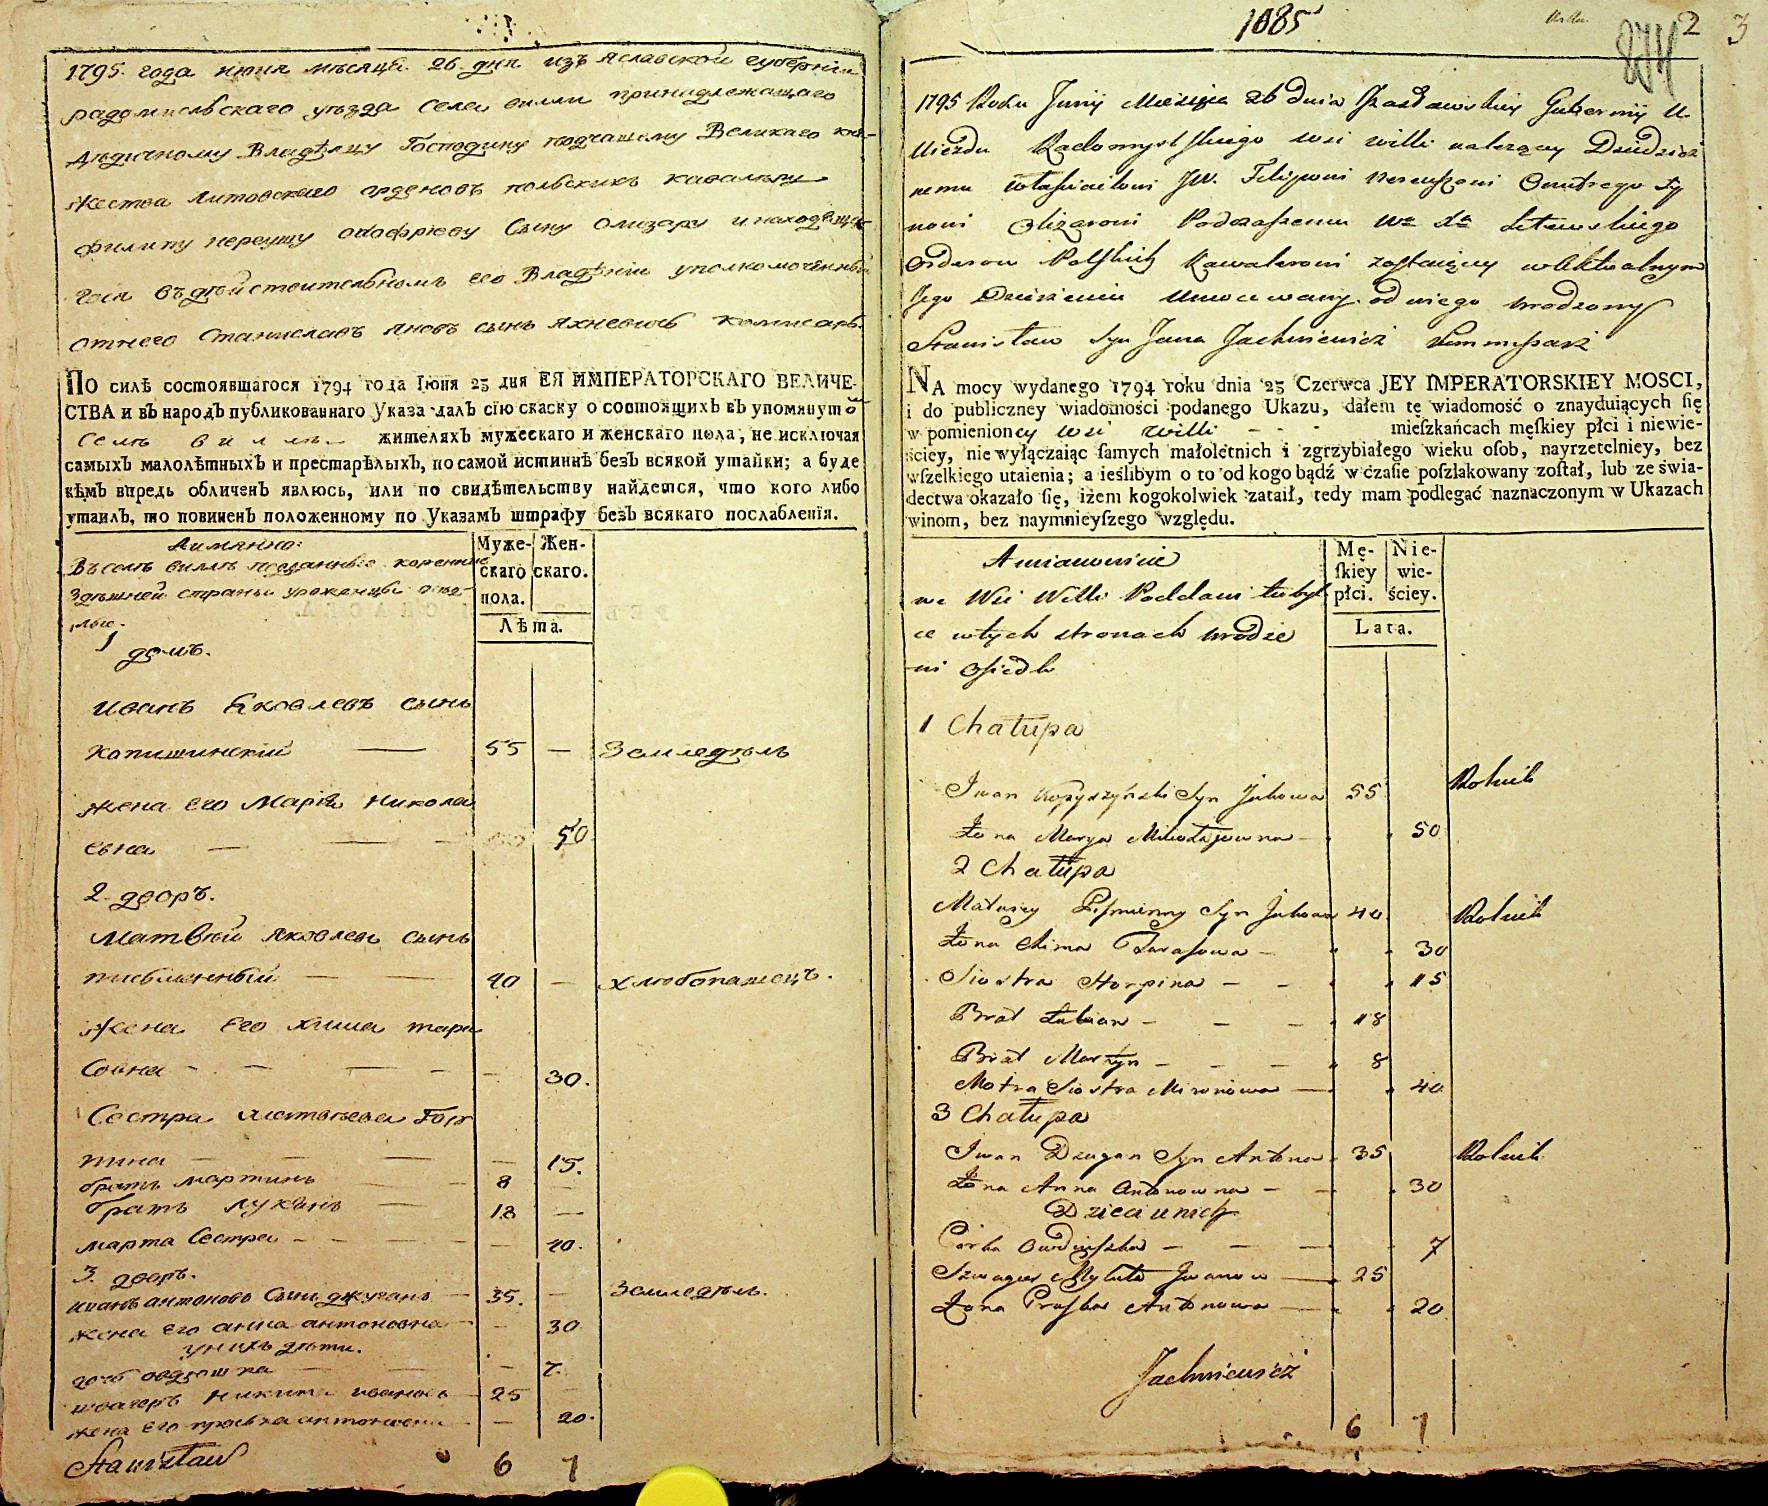 1795. года июня мѣсяца 26 дня изъ Яславской губерніи
радомысльскаго уѣзда села вилли принадлежащаго
дѣдичному Владѣлцу Господину подчашему Великаго кня-
жества литовскаго орденовъ польскихъ кавалеру
филипу нереушу онофріеву Сыну олизару и находяща-
гося въ дѣйствительномъ его Владѣніи уполномоченный
отнего Станиславъ Яновъ сынъ Яхневичъ комисаръ.
ПО силѣ состоявшагося 1794 года Іюня 23 дня ЕЯ ИМПЕРАТОРСКАГО ВЕЛИЧЕ-
СТВА и въ народъ публикованнаго Указа далъ сію скаску о состоящихъ въ упомянутомъ
Селѣ виллѣ жителяхъ мужескаго и женскаго пола, не исключая
самыхъ малолѣтныхъ и престарѣлыхъ, по самой истиннѣ безъ всякой утайки; а буде
кѣмъ впредь обличенъ явлюсь, или по свидѣтельству найдется, что кого либо
утаилъ, то повиненъ положенному по Указамъ штрафу безъ всякаго послабленія.
Аимянно:
Въ селѣ виллѣ подданные коренные
здѣшней страны уроженцы осѣд-
лые.
Муже-
скаго
пола.
Жен-
скаго.
Лѣта.
1 домъ.
иванъ Яковлевъ сынъ
Копишинскій 55 — Земледѣлъ
жена его Марія Никола
евна — 50
2. дворъ.
Матвѣй Яковлевъ сынъ
письменный 40 — хлѣбопашецъ.
жена его хима тара
совна — 30.
Сестра матвѣева Гор
пина — 15.
братъ мартинъ 8 —
братъ лукянъ 18 —
марта Сестра — 40.
3. дворъ.
иванъ антоновъ Сынъ джуганъ 35. — Земледѣлъ.
жена его анна антоновна — 30
у нихъ дѣти.
дочь овдюшка — 7.
швагеръ никита ивановъ 25 —
жена его проська антоновна — 20.
Stanisław
6 7
1085
2 3
874
1795 Roku Junij Miesięca 26 dnia Izasławskiey Gubernij
Uiezdu Radomyslskiego wsi willi należący Dziedzicz
nemu właścicielowi JW. Filipowi Nereuszowi Onufrego Sy
nowi Olizarowi Podczaszemu Wo Xa Litewskiego
Orderow Polskich Kawalerowi zostaiący w Aktualnym
Jego Dzierżeniu Umocowany od niego urodzony
Stanisław Syn Jana Jachniewicz Kommisarz
NA mocy wydanego 1794 roku dnia 23 Czerwca JEY IMPERATORSKIEY MOSCI,
i do publiczney wiadomości podanego Ukazu, dałem tę wiadomość o znayduiących ſię
w pomienioncy wsi willi - - - mieſzkańcach męſkiey płci i niewie-
ściey, nie wyłączaiąc ſamych małoletnich i zgrzybiałego wieku osob, nayrzetelniey, bez
wſzelkiego utaienia; a ieślibym o to od kogo bądź w czaſie poſzlakowany zoſtał, lub ze świa-
dectwa okazało ſię, iżem kogokolwiek zataił, tedy mam podlegać naznaczonym w Ukazach
winom, bez naymnieyſzego względu.
Amianowicie
we Wsi Willi Poddani tubyl
ce wtych stronach urodze
ni osiedli
Mę-
ſkiey
płci.
Nie-
wie-
ściey.
Lata.
1 Chałupa
Iwan Kopyszyński Syn Jakowa 55 Rolnik
Żona Marya Mikołajowna 50
2 Chałupa
Matwiey Pismienny Syn Jakowa 40 Rolnik
Żona Chima Tarasowa 30
Siostra Horpina 15
Brat Łukian 18
Brat Martyn 8
Motra Siostra Mironowa 40
3 Chałupa
Iwan Dzugan Syn Antona 35 Rolnik
Żona Anna Antonowna 30
Dzieci u nich
Córka Owdiuszka 7
Szwagier Mykita Iwanow 25
Żona Proska Antonowa 20
Jachniewicz
6 7